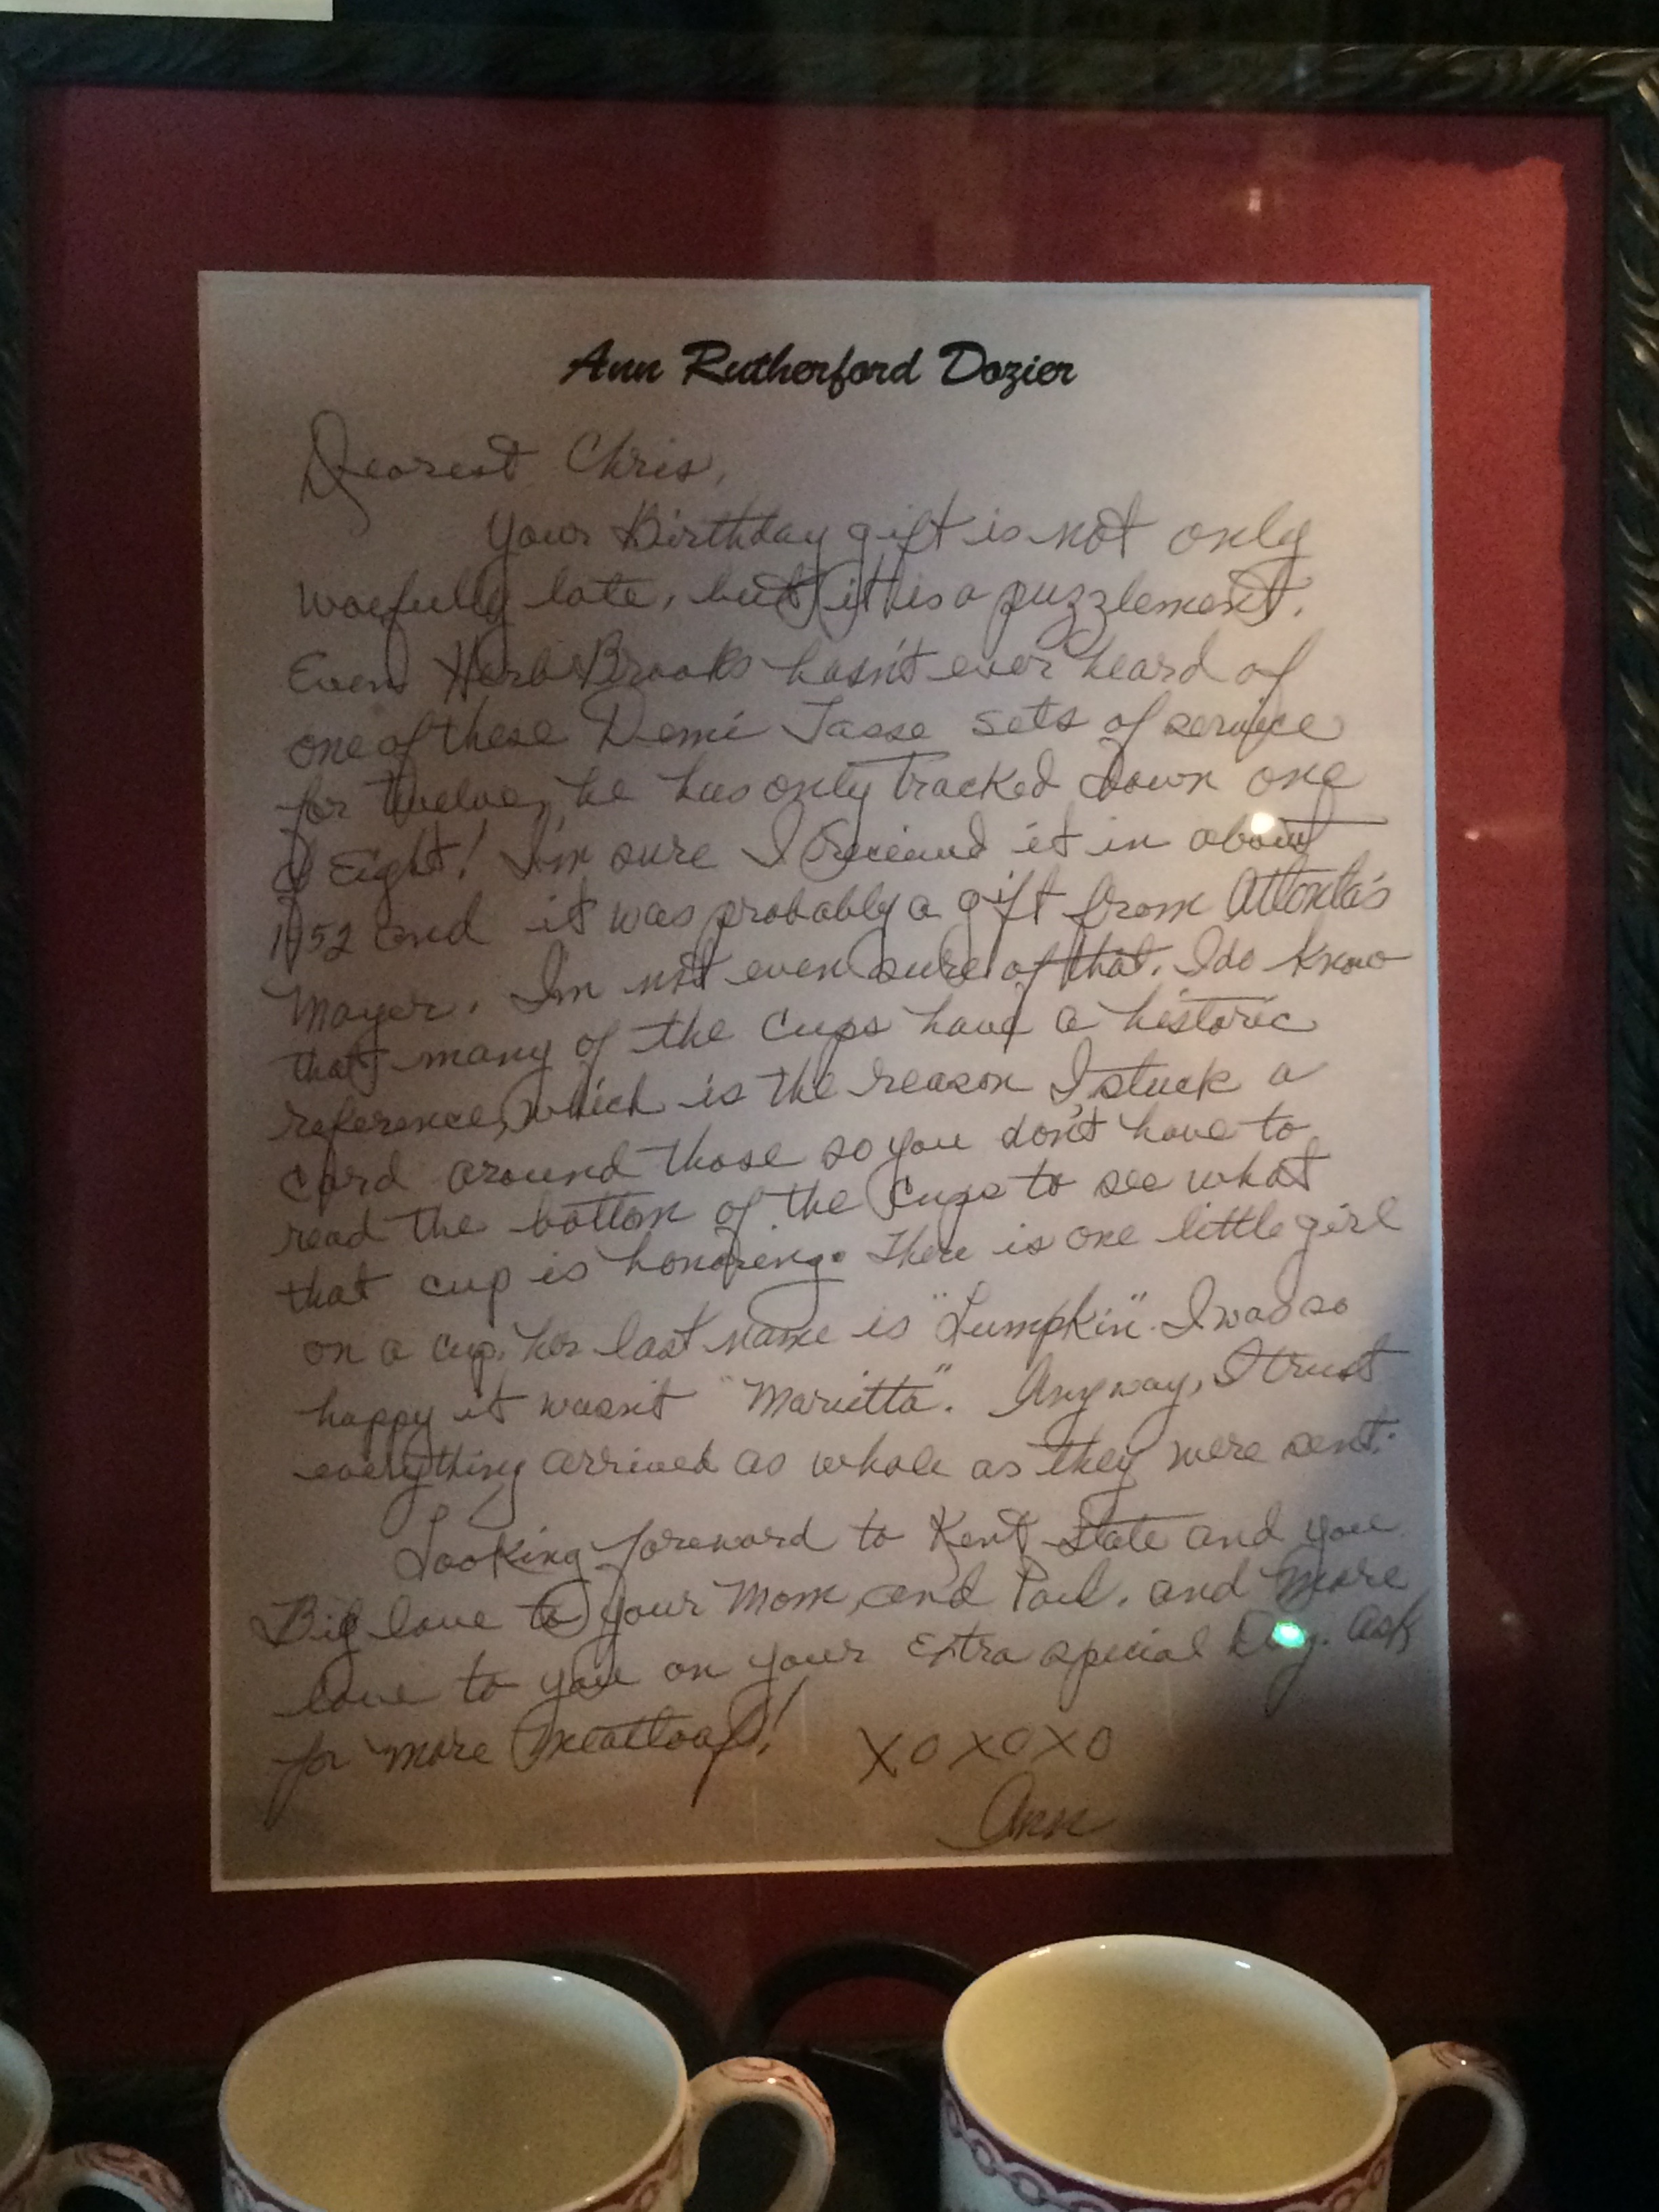 Ann Rutherford Dozier
Dearest Chris,
Your Birthday gift is not only
woefully late, but it is a puzzlement.
Even Herb Brooks hasn't ever heard of
one of these Demi Tasse sets of service
for twelve, he has only tracked down one
of Eight! I'm sure I received it in about
1952 and it was probably a gift from Atlanta's
Mayor. I'm not even sure of that. I do know
that many of the cups have a historic
reference, which is the reason I stuck a
card around those so you don't have to
read the bottom of the cups to see what
that cup is honoring. There is one little girl
on a cup, her last name is "Lumpkin". I was so
happy it wasn't "Marietta". Anyway, I trust
everything arrived as whole as they were sent.
Looking foreward to Kent State and you
Big love to your Mom, and Paul, and more
love to you on your Extra special Day. Ask
for more meatloaf! XOXOXO
Ann